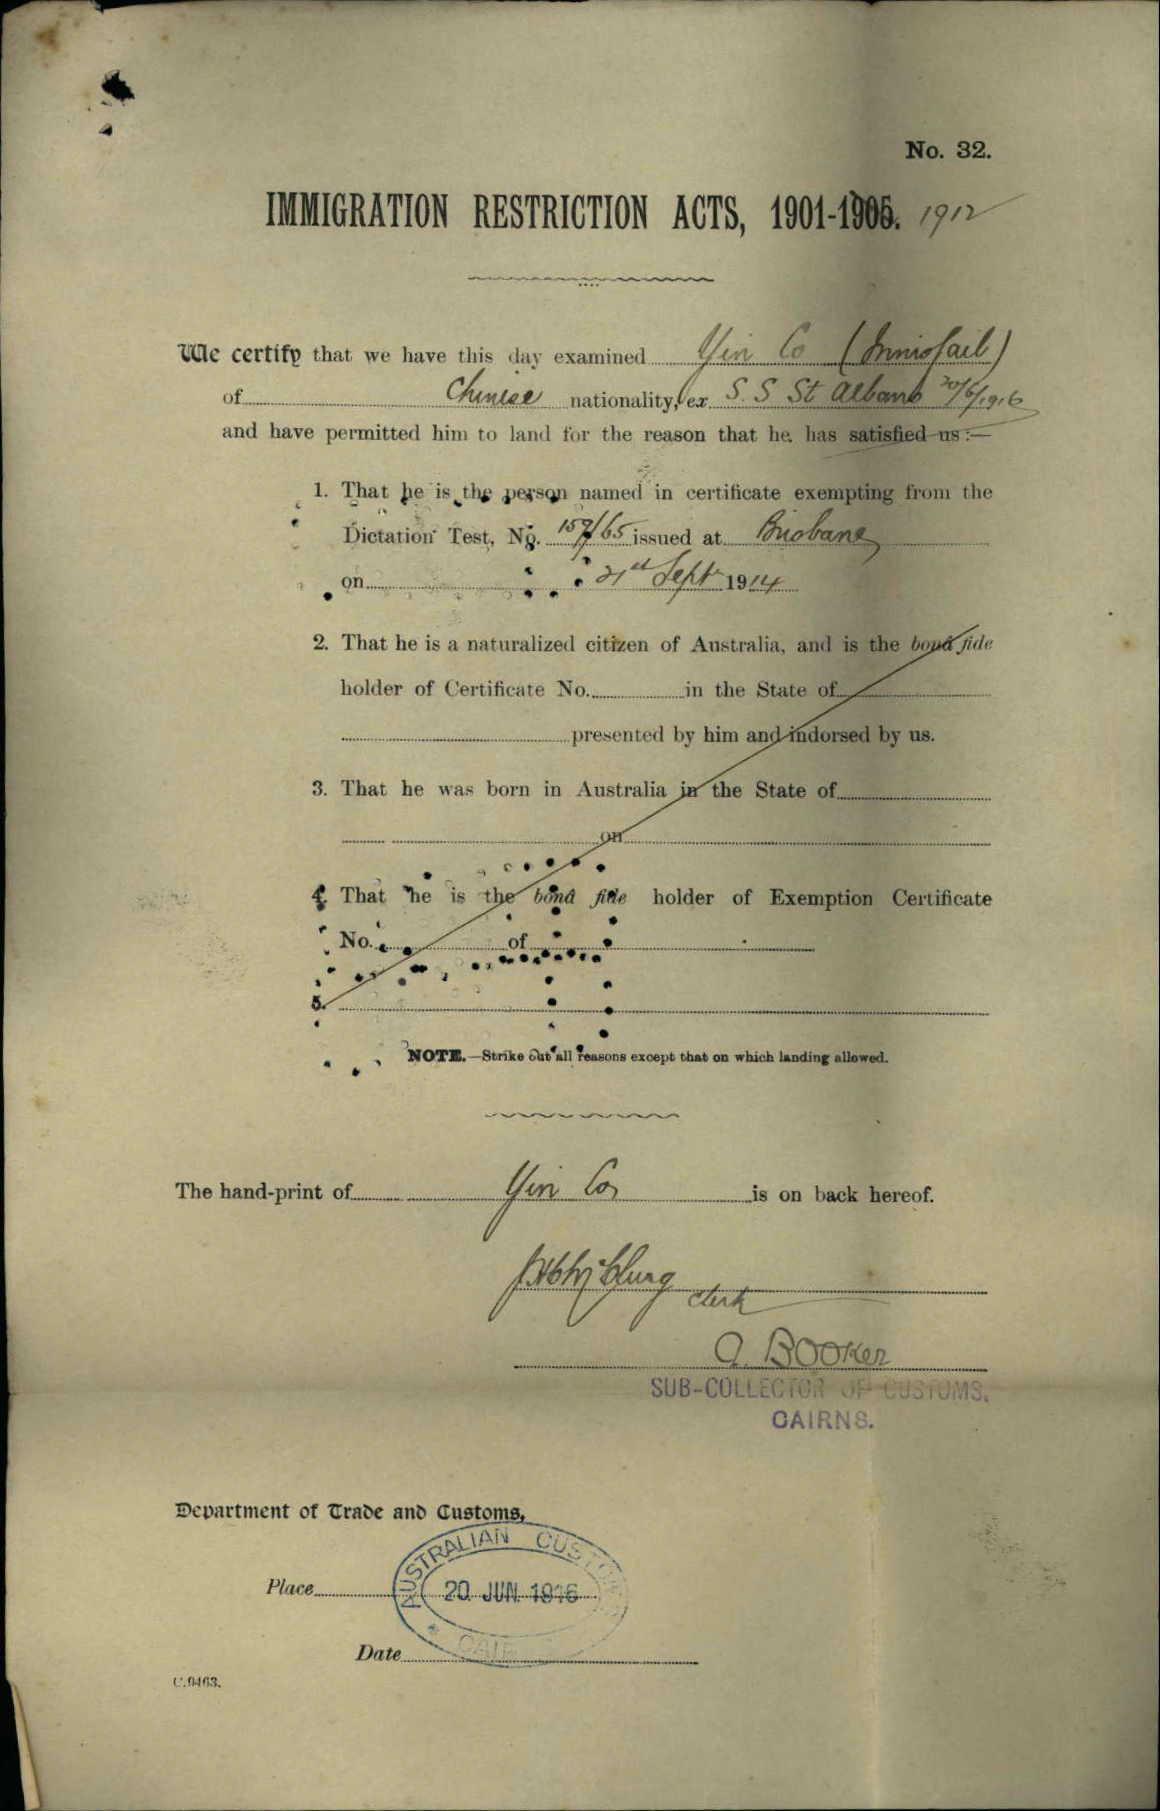 No. 32.
IMMIGRATION RESTRICTION ACTS, 1901-1905. 1912
We certify that we have this day examined Yin Co (Innisfail)
of Chinese nationality, ex S. S St Albans 20/6/1916
and have permitted him to land for the reason that he has satisfied us:—
1. That he is the person named in certificate exempting from the
Dictation Test, No. 159/65 issued at Brisbane
on 21st Sept 1914
2. That he is a naturalized citizen of Australia, and is the bonâ fide
holder of Certificate No. in the State of
presented by him and indorsed by us.
3. That he was born in Australia in the State of
on
4. That he is the bonâ fide holder of Exemption Certificate
No. of
5.
NOTE.—Strike out all reasons except that on which landing allowed.
The hand-print of Yin Co, is on back hereof.
Clerk
A. BOOKer
SUB-COLLECTOR OF CUSTOMS,
CAIRNS.
Department of Trade and Customs,
AUSTRALIAN CUSTOMS
Place 20 JUN. 1916
CAIRNS
Date
C.9463.